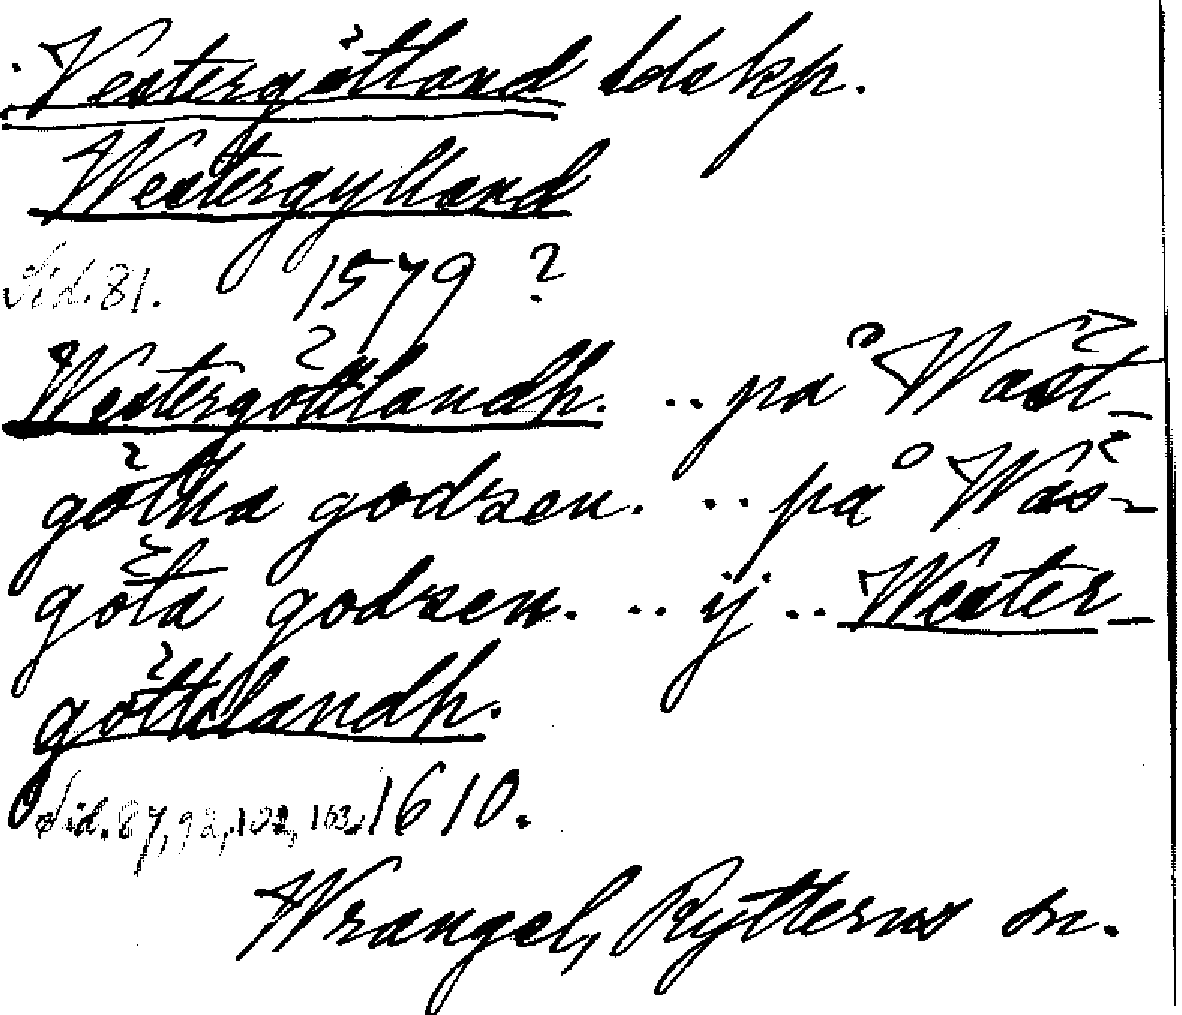 Vestergötland ldskp.
Westergylland
Sid. 81. 1579 ?
Westergöttlandh. .. på Wäst-
götha godzen. .. på Wäs-
göta godzen. .. ij .. Wester-
göttlandh.
Sid. 87, 92, 102, 163, 1610.
Wrangel, Rytterns sn.